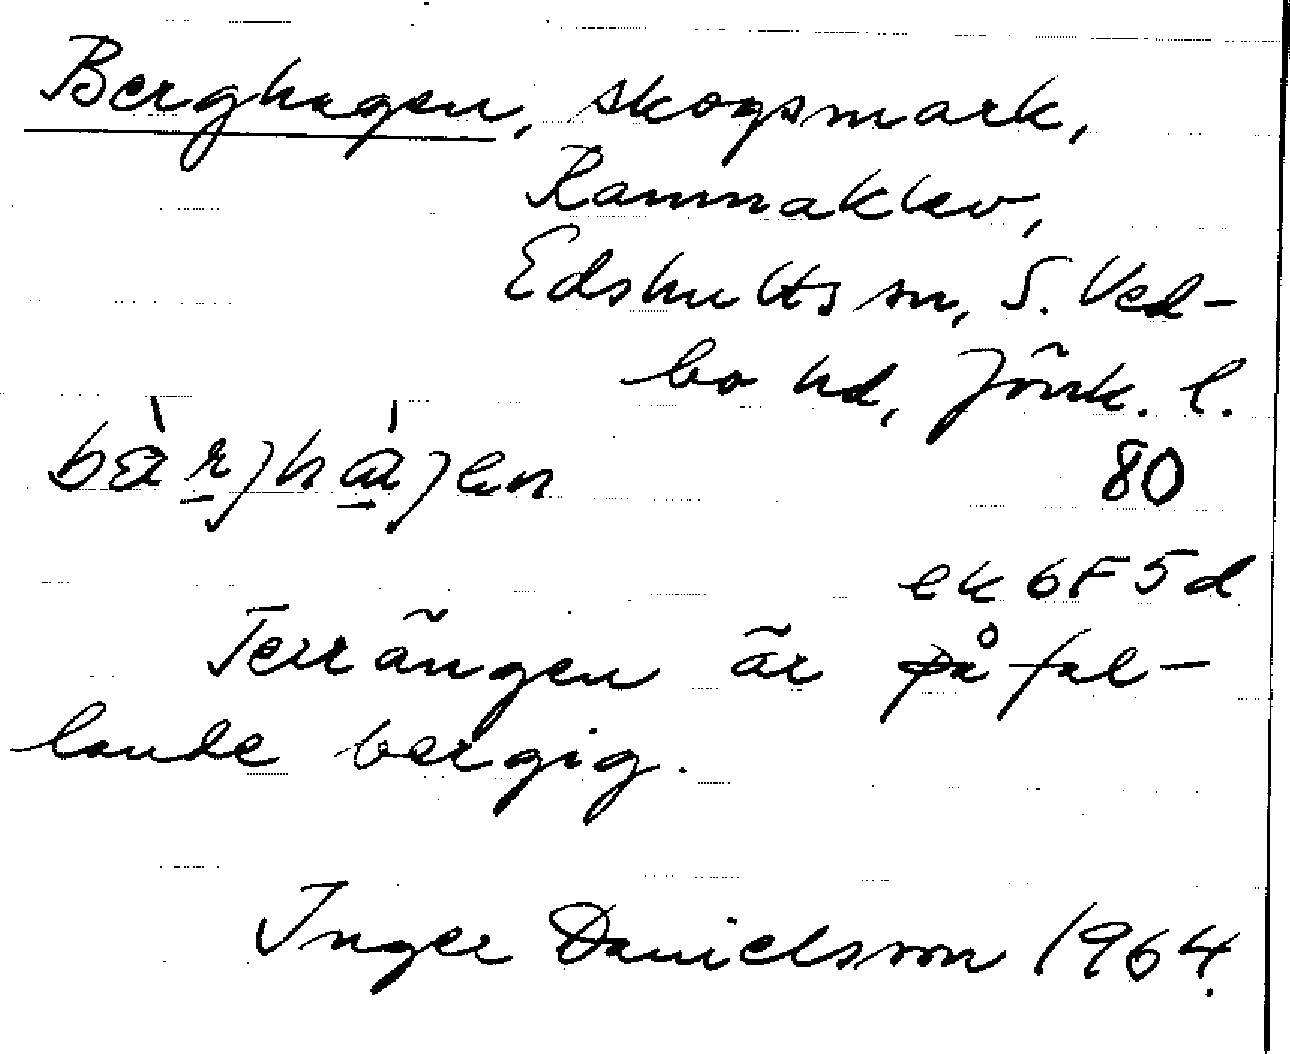 Berghagen, skogsmark,
Ramnaklev,
Edshults sn, S. Ved-
bo hd, Jönk. l.
80
ek 6F 5d
Terrängen är påfal-
lande bergig.
Inger Danielsson 1964.